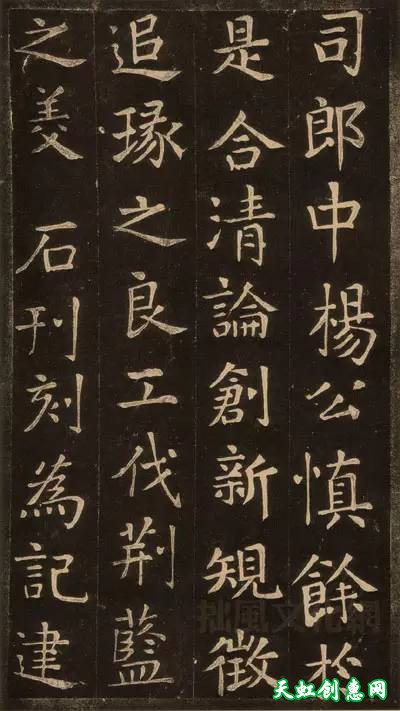 司郎中楊公慎餘扵
是合清論創新規徵
追琢之良工伐荆藍
之美 石刊刻為記建
拙風文化網
天虹创惠网